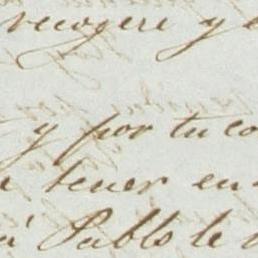 recogere y e
y por tu co
tener en
a Pablo le